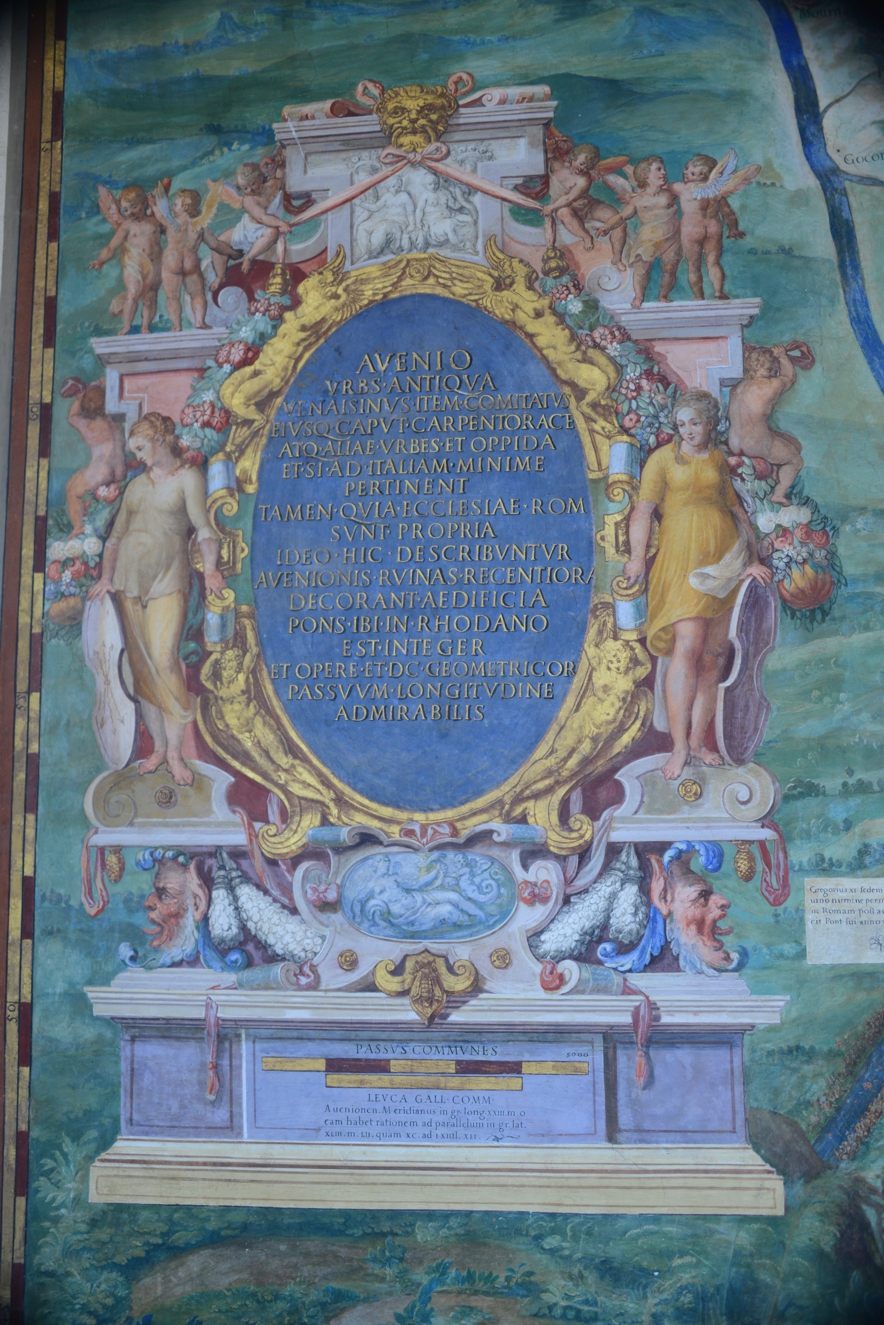 AVENIO
VRBS·ANTIQVA
VENAISINVS·ITEM·COMITATVS
EIVSQ·CAPVT·CARPENTORACTE
ATQ·ALIAE·VRBES·ET·OPPIDA
ET·SI·AD·ITALIAM·MINIME
PERTINENT
TAMEN·QVIA·ECCLESIAE·ROM
SVNT·PROPRIA
IDEO·HIC·DESCRIBVNTVR
AVENIONIS·RVINAS·RECENTIORA
DECORANT·AEDIFICIA
PONS·IBI·IN·RHODANO
EST·INTEGER
ET·OPERE·ET·DC·GEOMETRICOR
PASSVVM·LONGITVDINE
ADMIRABILIS
Gregorius XI sedem
in Romam
PASSVS·COMMVNES
2000
LEVCA GALL·COMM
Auenionen. Meridianus in gr. long.
eam habet rationem ad parallelum in gr. lat.
quam XC. ad